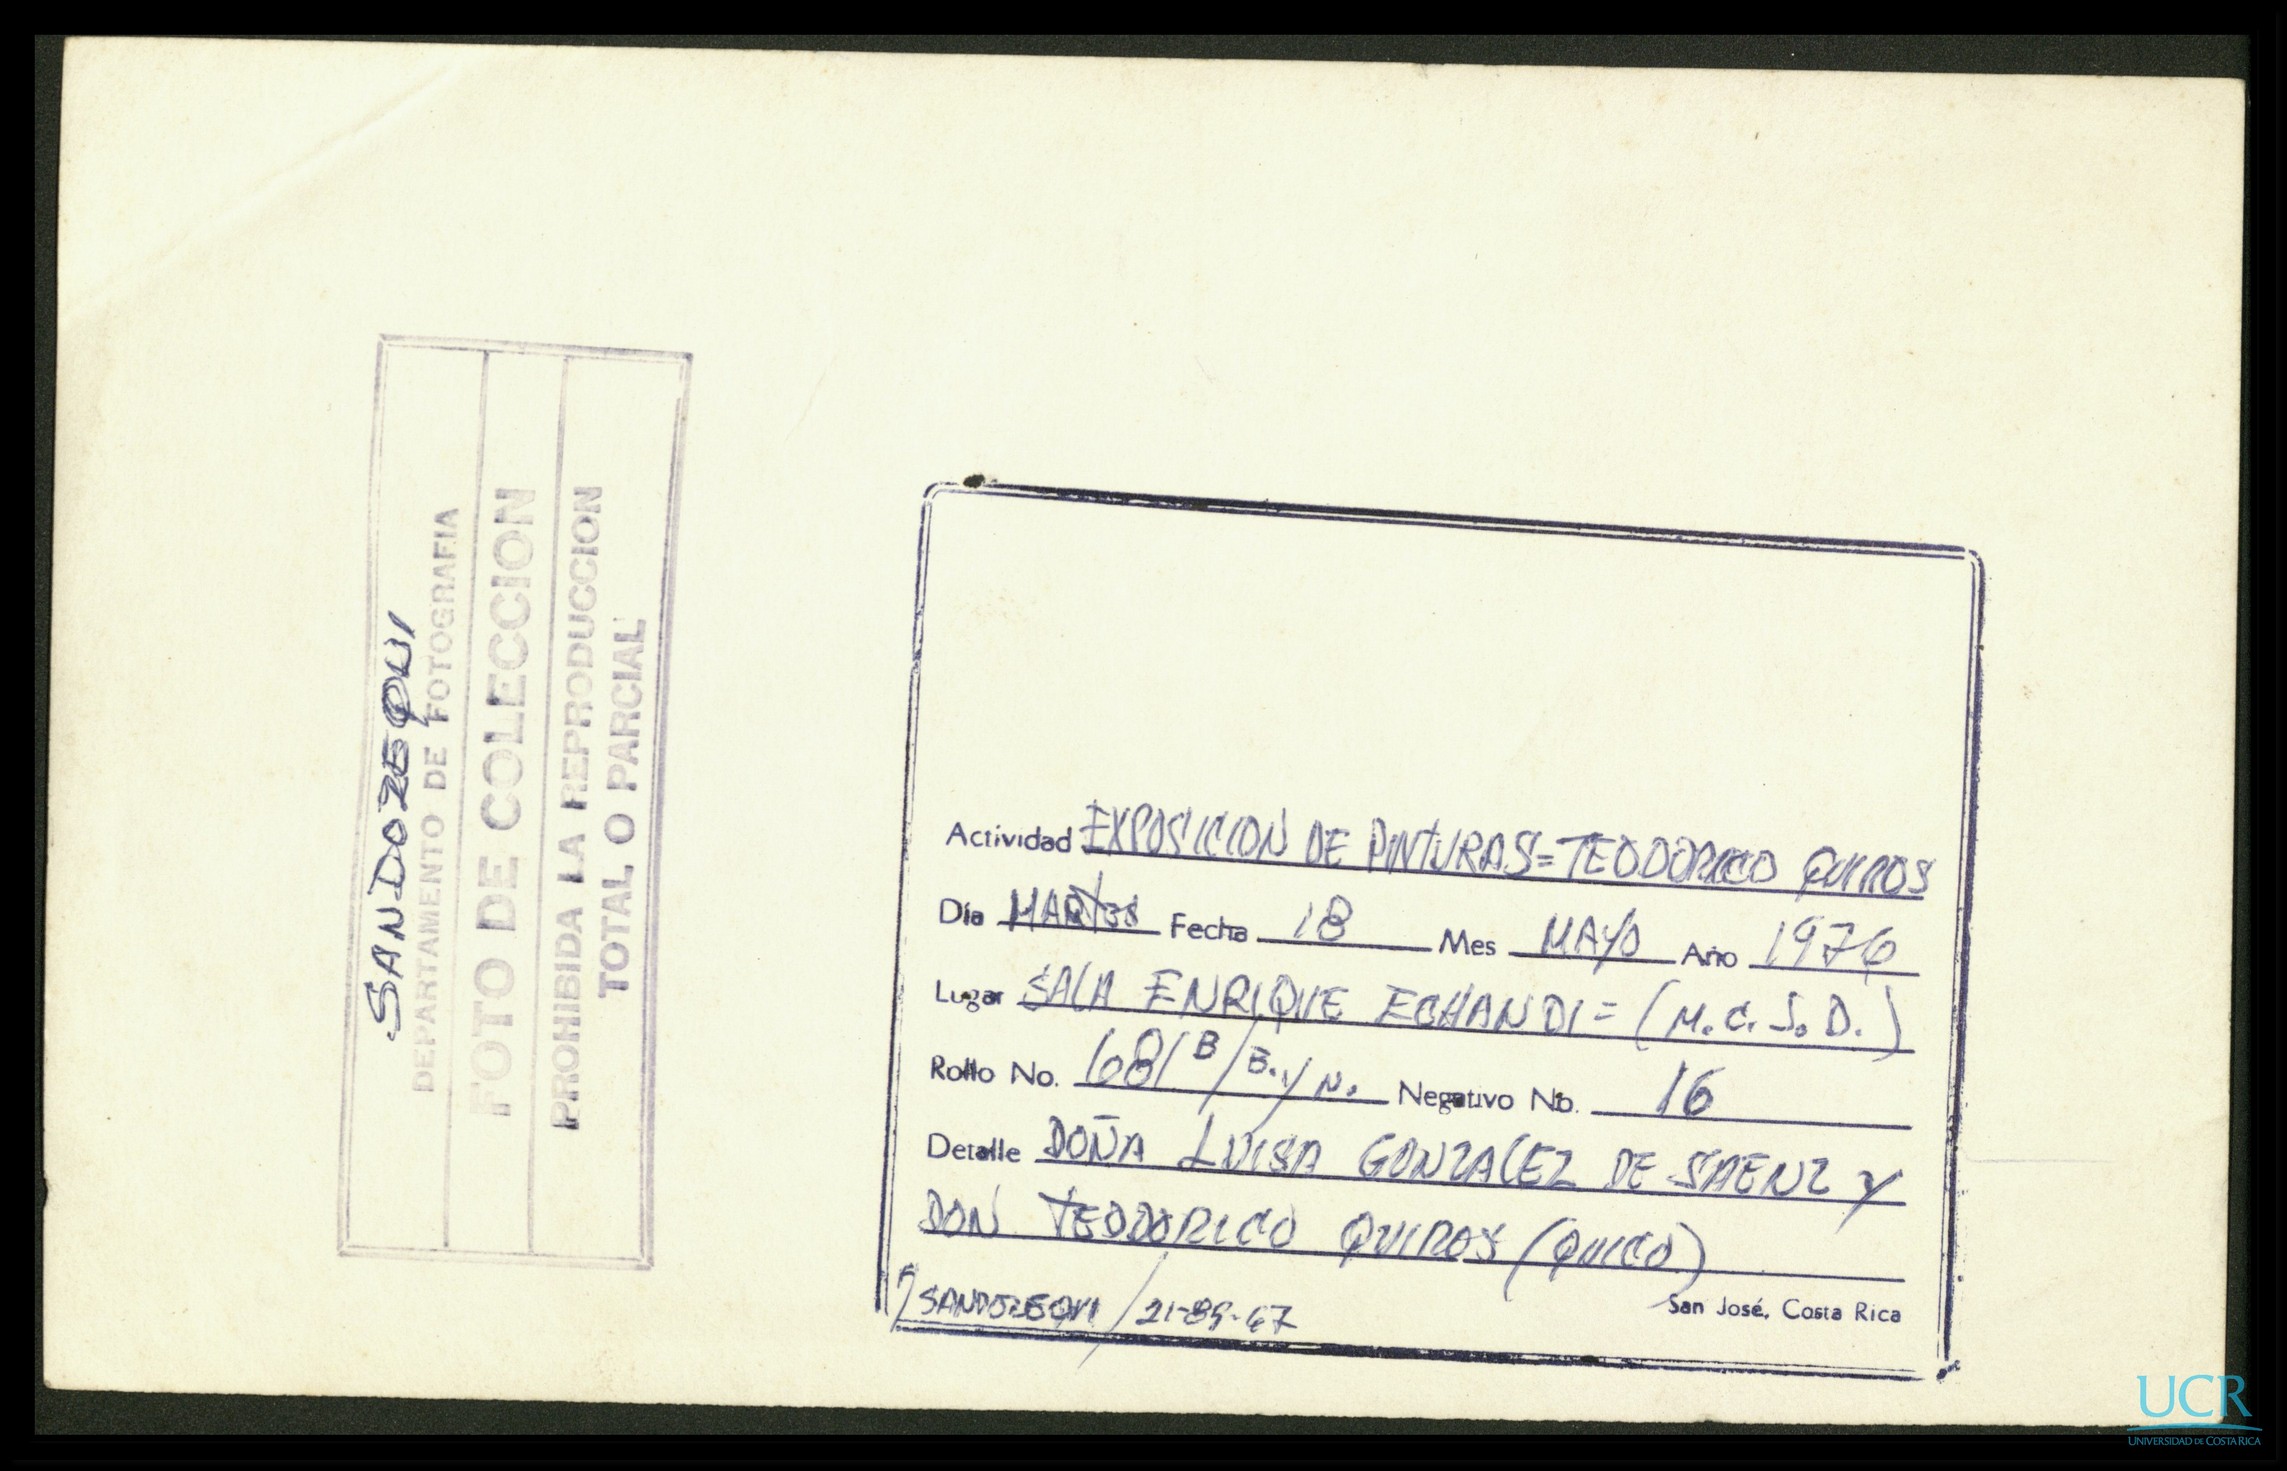 SANDOZEQUI
DEPARTAMENTO DE FOTOGRAFIA
FOTO DE COLECCION
PROHIBIDA LA REPRODUCCION
TOTAL O PARCIAL
Actividad EXPOSICION DE PINTURAS = TEODORICO QUIROS
Día MARTES Fecha 18 Mes MAYO Año 1976
Lugar SALA ENRIQUE ECHANDI = (M.C.J.D.)
Rollo No. 681 B / B. y N. Negativo No. 16
Detalle DOÑA LUISA GONZALEZ DE SAENZ Y
DON TEODORICO QUIROS (QUICO)
SANDOZEQUI / 21-89-67
San José, Costa Rica
UCR
UNIVERSIDAD DE COSTA RICA